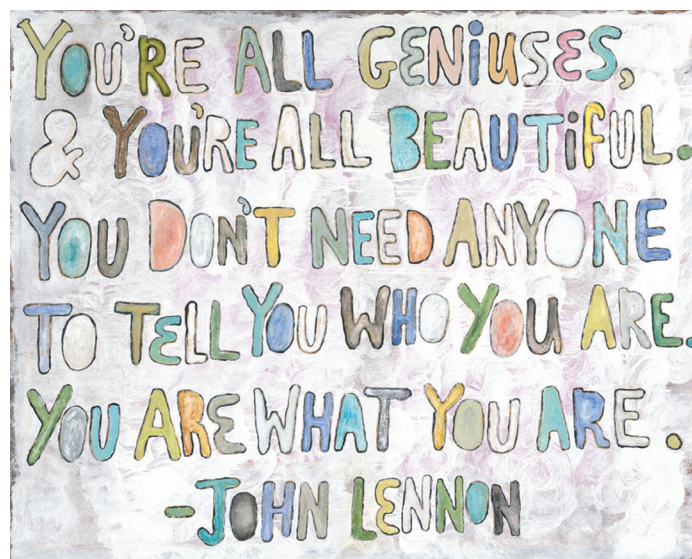 YOU'RE ALL GENiUSES,
& YOU'RE ALL BEAUTiFUL.
YOU DON'T NEED ANYONE
TO TELL YOU WHO YOU ARE.
YOU ARE WHAT YOU ARE.
-JOHN LENNON